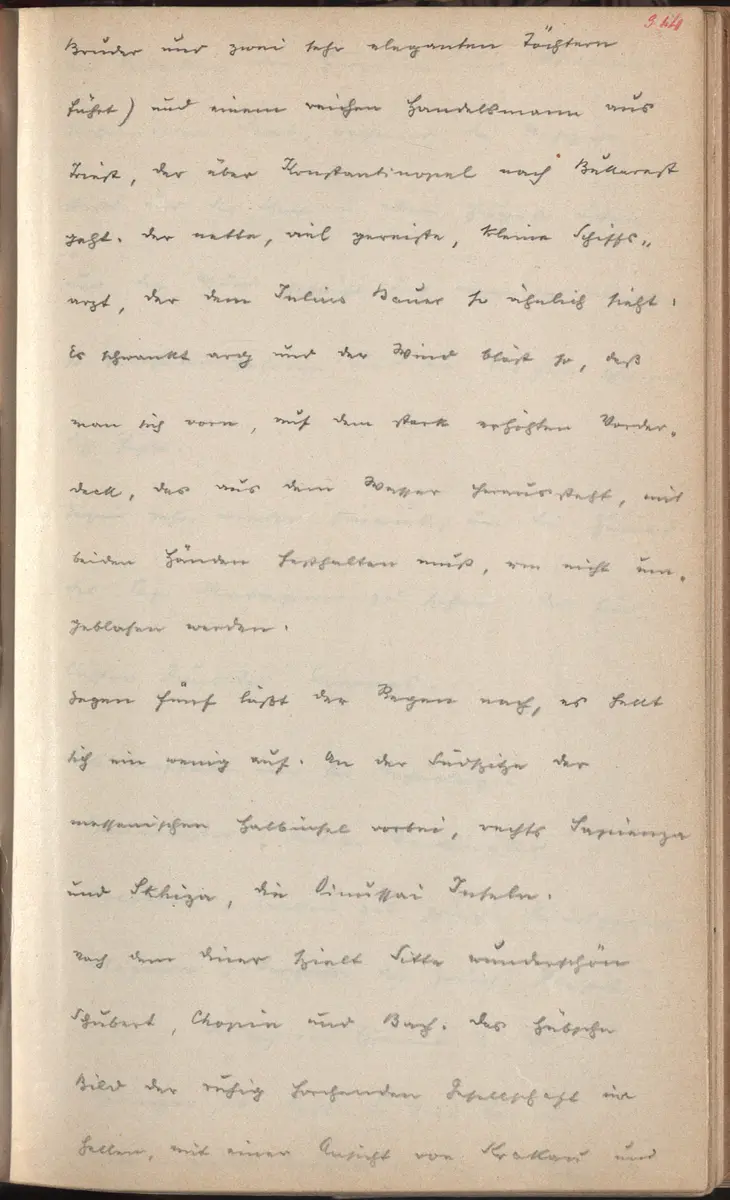 Bruder und zwei sehr eleganten Töchtern
fährt) und einem reichen Handelsmann aus
Triest, der über Konstantinopel nach Bukarest
geht. Der nette, viel gereiste, kleine Schiffs„
arzt, der dem Julius Bauer so ähnlich sieht.
Es schwankt arg und der Wind bläst so, daß
man sich vorn, auf dem stark erhöhten Vorder„
deck, das aus dem Wasser heraussteht, mit
beiden Händen festhalten muß, um nicht um„
geblasen werden.
Gegen fünf läßt der Regen nach, es hellt
sich ein wenig auf. An der Südspitze der
messenischen Halbinsel vorbei, rechts Sapienza
und Skhiza, die Oinussai Inseln.
Nach dem Diner spielt Sitte wunderschön
Schubert, Chopin und Bach. Das hübsche
Bild der ruhig horchenden Gesellschaft im
hellen, mit einer Ansicht von Krakau und